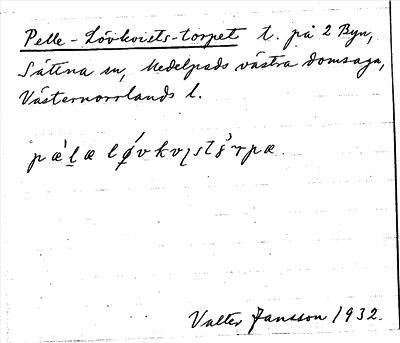 Pelle-Lövkvists-torpet t. på 2 Byn,
Sättna sn, Medelpads västra domsaga,
Västernorrlands l.
Valter Jansson 1932.